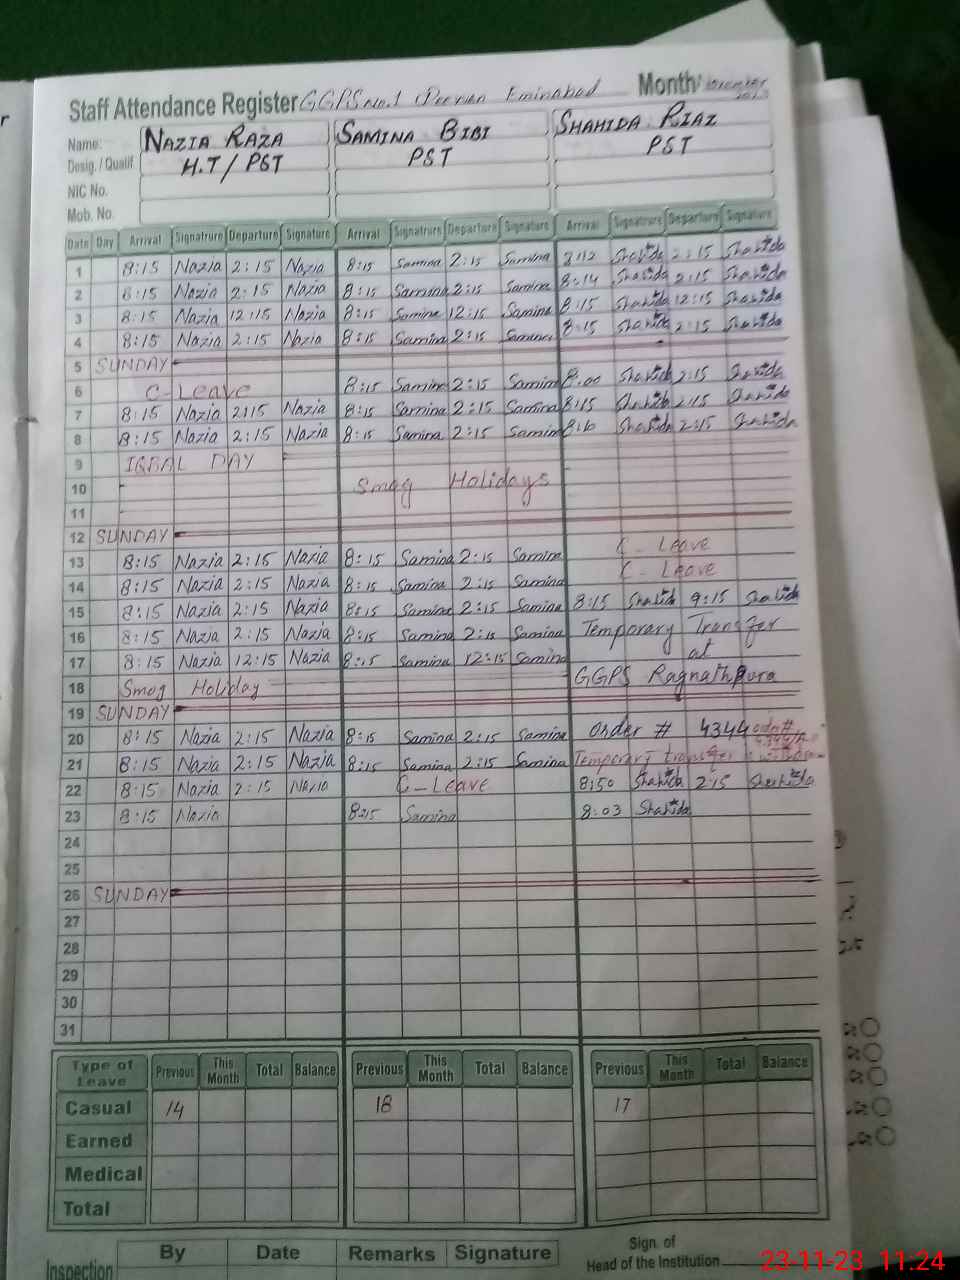 Staff Attendance Register GGPS No.1 Eminabad Month November
Name: NAZIA RAZA SAMINA BIBI SHAHIDA RIAZ
Desig. / Qualif. H.T / PST PST PST
NIC No.
Mob. No.
Date Day Arrival Signatrure Departure Signature Arrival Signatrure Departure Signature Arrival Signatrure Departure Signature
1 8:15 Nazia 2:15 Nazia 8:15 Samina 2:15 Samina 8:12 Shahida 2:15 Shahida
2 8:15 Nazia 2:15 Nazia 8:15 Samina 2:15 Samina 8:14 Shahida 2:15 Shahida
3 8:15 Nazia 12:15 Nazia 8:15 Samina 12:15 Samina 8:15 Shahida 12:15 Shahida
4 8:15 Nazia 2:15 Nazia 8:15 Samina 2:15 Samina 8:15 Shahida 2:15 Shahida
5 SUNDAY
6 C-Leave 8:15 Samina 2:15 Samina 8:00 Shahida 2:15 Shahida
7 8:15 Nazia 2:15 Nazia 8:15 Samina 2:15 Samina 8:15 Shahida 2:15 Shahida
8 8:15 Nazia 2:15 Nazia 8:15 Samina 2:15 Samina 8:10 Shahida 2:15 Shahida
9 IQBAL DAY
10 Smog Holidays
11
12 SUNDAY
13 8:15 Nazia 2:15 Nazia 8:15 Samina 2:15 Samina C-Leave
14 8:15 Nazia 2:15 Nazia 8:15 Samina 2:15 Samina C-Leave
15 8:15 Nazia 2:15 Nazia 8:15 Samina 2:15 Samina 8:15 Shahida 9:15 Shahida
16 8:15 Nazia 2:15 Nazia 8:15 Samina 2:15 Samina Temporary Transfer
17 8:15 Nazia 12:15 Nazia 8:15 Samina 12:15 Samina at
18 Smog Holiday GGPS Ragnathpura
19 SUNDAY
20 8:15 Nazia 2:15 Nazia 8:15 Samina 2:15 Samina Order # 4344
21 8:15 Nazia 2:15 Nazia 8:15 Samina 2:15 Samina Temporary transfer
22 8:15 Nazia 2:15 Nazia C-Leave 8:50 Shahida 2:15 Shahida
23 8:15 Nazia 8:15 Samina 8:03 Shahida
24
25
26 SUNDAY
27
28
29
30
31
Type of Leave Previous This Month Total Balance Previous This Month Total Balance Previous This Month Total Balance
Casual 14 18 17
Earned
Medical
Total
Inspection By Date Remarks Signature Sign. of
Head of the Institution
23-11-23 11:24